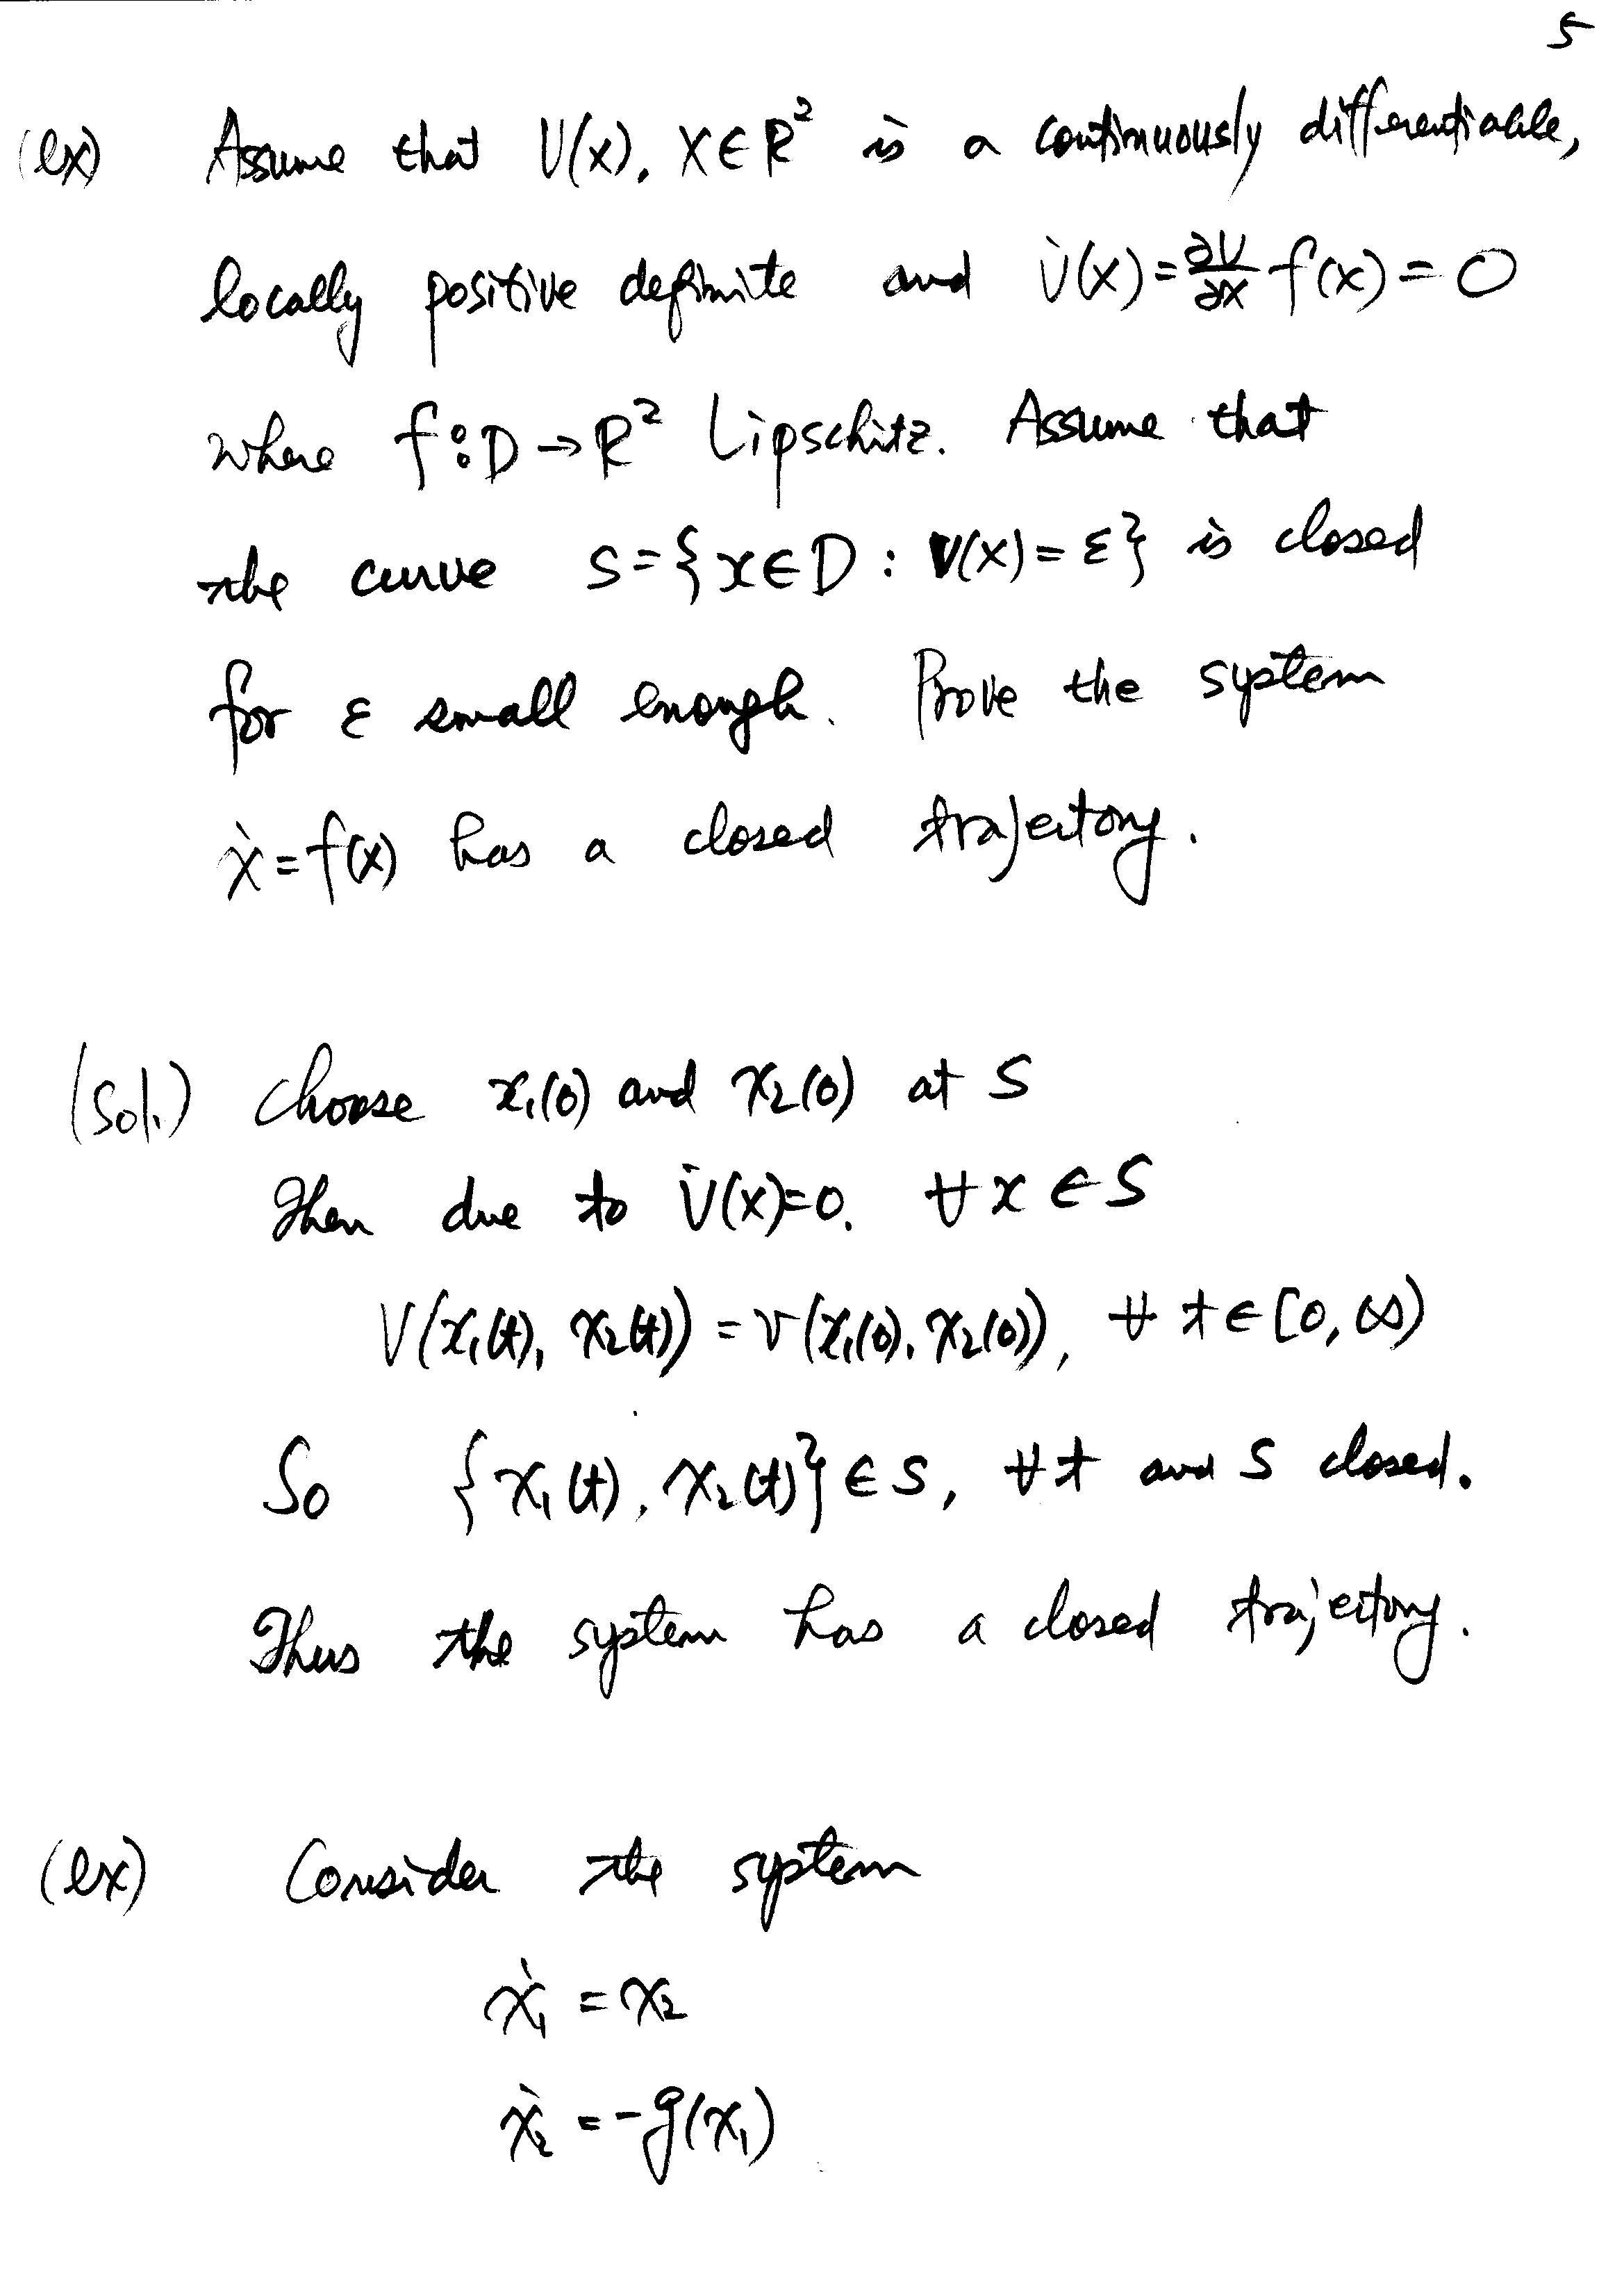 5
(ex) Assume that V(x), x∈R² is a continuously differentiable,
locally positive definite and V̇(x)=∂V/∂x f(x)=0
where f:D→R² Lipschitz. Assume that
the curve S={x∈D : V(x)=ε} is closed
for ε small enough. Prove the system
ẋ=f(x) has a closed trajectory.
(Sol.) Choose x₁(0) and x₂(0) at S
Then due to V̇(x)=0, ∀x∈S
V(x₁(t), x₂(t)) = V(x₁(0), x₂(0)), ∀t∈[0,∞)
So {x₁(t), x₂(t)}∈S, ∀t and S closed.
Thus the system has a closed trajectory.
(ex) Consider the system
ẋ₁ = x₂
ẋ₂ = -g(x₁)